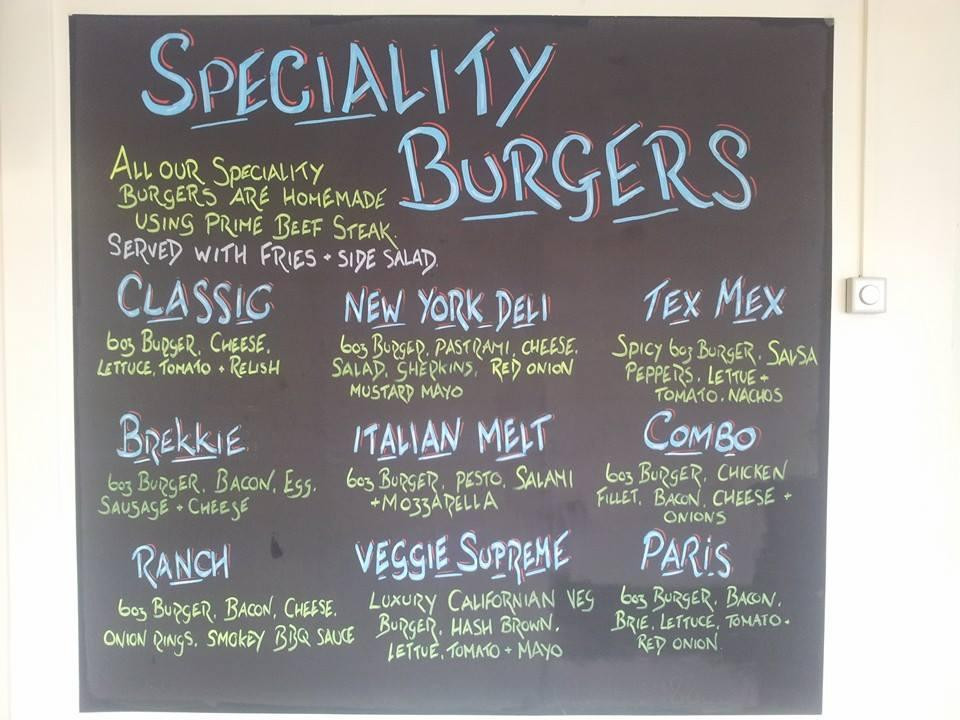 SPECIALITY
BURGERS
ALL OUR SPECIALITY
BURGERS ARE HOMEMADE
USING PRIME BEEF STEAK.
SERVED WITH FRIES + SIDE SALAD.
CLASSIC
6oz BURGER, CHEESE,
LETTUCE, TOMATO + RELISH
NEW YORK DELI
6oz BURGER, PASTRAMI, CHEESE,
SALAD, GHERKINS, RED ONION
MUSTARD MAYO
TEX MEX
SPICY 6oz BURGER, SALSA
PEPPERS, LETTUE +
TOMATO, NACHOS
BREKKIE
6oz BURGER, BACON, EGG,
SAUSAGE + CHEESE
ITALIAN MELT
6oz BURGER, PESTO, SALAMI
+ MOZZARELLA
COMBO
6oz BURGER, CHICKEN
FILLET, BACON, CHEESE +
ONIONS
RANCH
6oz BURGER, BACON, CHEESE,
ONION RINGS, SMOKEY BBQ SAUCE
VEGGIE SUPREME
LUXURY CALIFORNIAN VEG
BURGER, HASH BROWN,
LETTUE, TOMATO + MAYO
PARIS
6oz BURGER, BACON,
BRIE, LETTUCE, TOMATO.
RED ONION